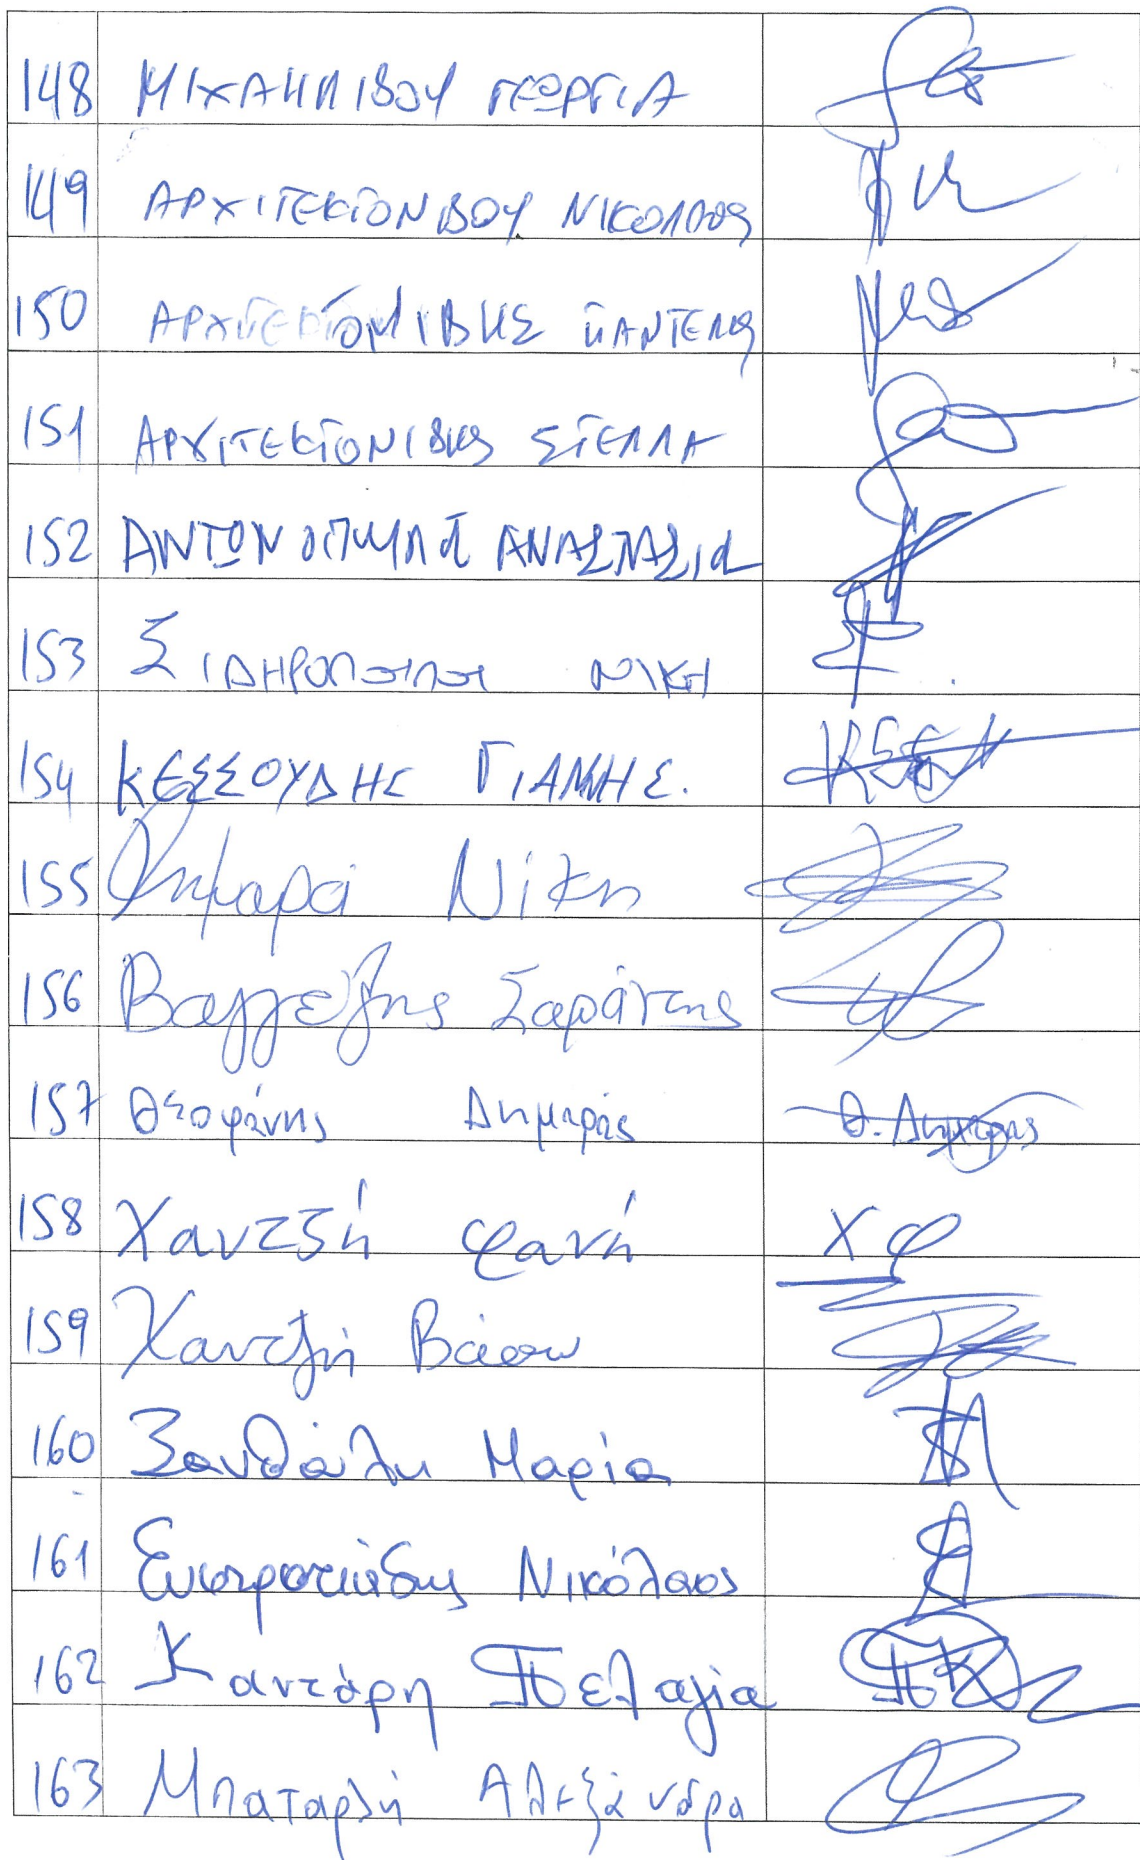 148 ΜΙΧΑΗΛΙΔΟΥ ΓΕΩΡΓΙΑ
149 ΑΡΧΙΤΕΚΤΟΝΙΔΟΥ ΝΙΚΟΛΑΟΣ
150 ΑΡΧΙΤΕΚΤΟΝΙΔΗΣ ΠΑΝΤΕΛΗΣ
151 ΑΡΧΙΤΕΚΤΟΝΙΔΗΣ ΣΤΕΛΛΑ
152 ΑΝΤΩΝΟΠΟΥΛΟΥ ΑΝΑΣΤΑΣΙΑ
153 ΣΙΔΗΡΟΠΟΥΛΟΥ ΝΙΚΗ
154 ΚΕΣΣΟΥΔΗΣ ΓΙΑΝΝΗΣ.
155 Νίκη
156 Βαγγέλης Σαράντης
157 Θεοφάνης Δημαράς Θ. Δημαράς
158 Χαντζή Φανή Χ Φ
159 Χαντζή Βάσω
160 Ξανθάλη Μαρία
161 Ευστρατιάδης Νικόλαος
162 Καντάρη Πελαγία ΠΚ
163 Μπαταρλή Αλεξάνδρα